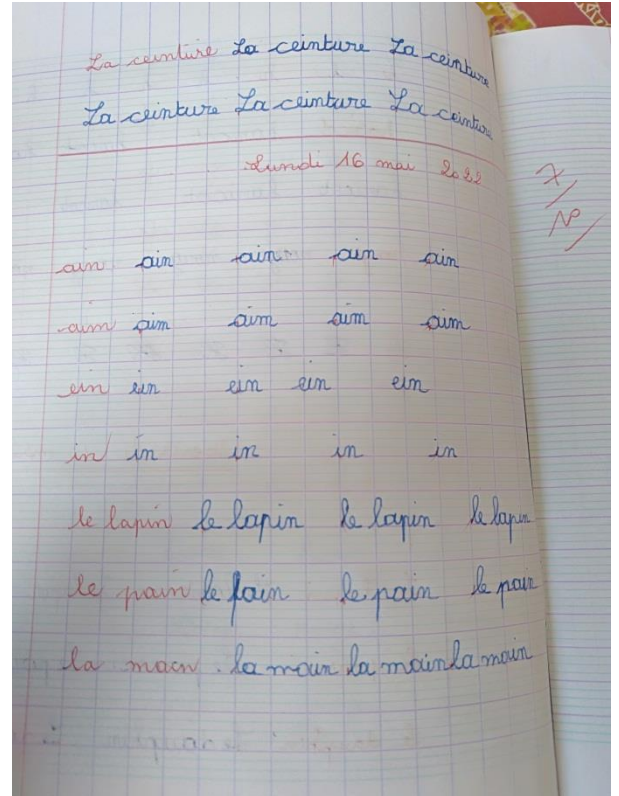 La ceinture La ceinture La ceinture
La ceinture La ceinture La ceinture
Lundi 16 mai 2022
ain ain ain ain ain
aim aim aim aim aim
ein ein ein ein ein
in in in in in
le lapin le lapin le lapin le lapin
le pain le pain le pain le pain
la main la main la main la main